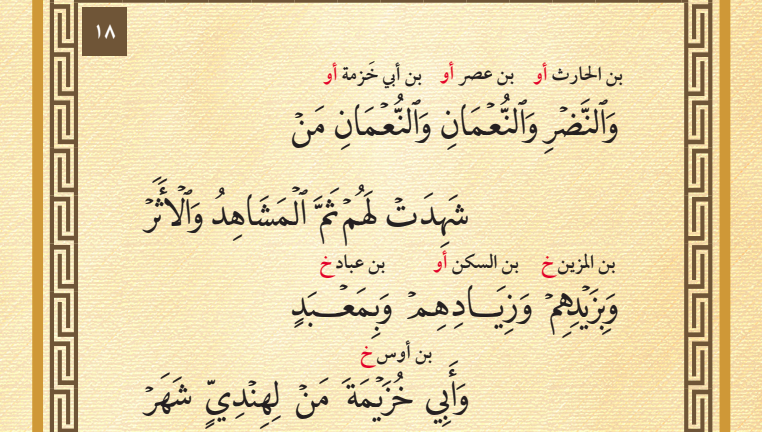 ١٨
بن الحارث أو بن عصر أو بن أبي خَزمة أو
وَٱلنَّضْرِ وَٱلنُّعْمَانِ وَٱلنُّعْمَانِ مَنْ
شَهِدَتْ لَهُمْ ثَمَّ ٱلْمَشَاهِدُ وَٱلْأَثَرْ
بن المزين خ بن السكن أو بن عباد خ
وَبِزَيْدِهِمْ وَزِيَــادِهِمْ وَبِمَعْــبَدٍ
بن أوس خ
وَأَبِي خُزَيْمَةَ مَنْ لِهِنْدِيٍّ شَهَرْ